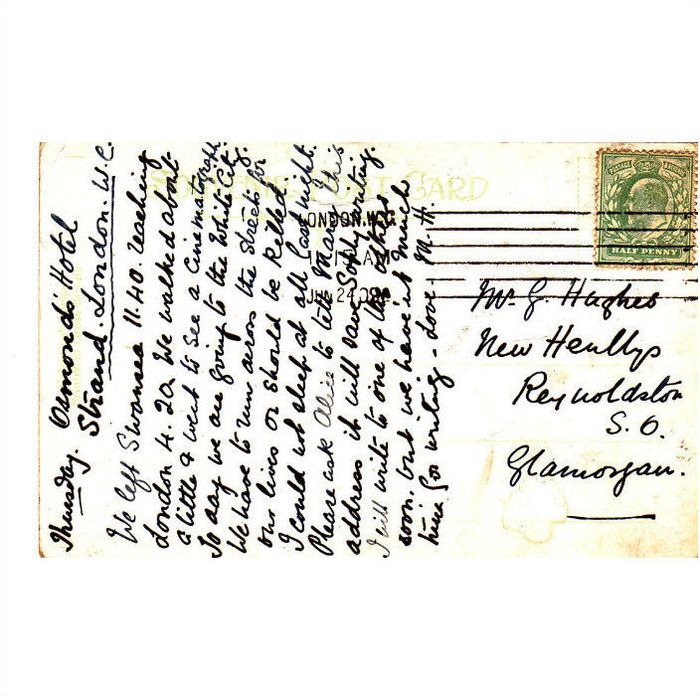 Thursday. Osmond Hotel
Strand. London. W.C.
We left Swansea 11.40. reaching
London 4.20. We walked about
a little & went to see a cinematograph.
To day we are going to the White City.
We have to run across the streets for
our lives or should be killed.
I could not sleep at all last night.
Please ask Alice to tell Mary this
address it will save Sophy writing.
I will write to one of the others
soon. but we haven't much
time for writing - love M. H.
POST CARD
LONDON. W.C.
JU 24 09
POSTAGE
HALF PENNY
Mr. G. Hughes
New Henllys
Reynoldston
S. O.
Glamorgan.